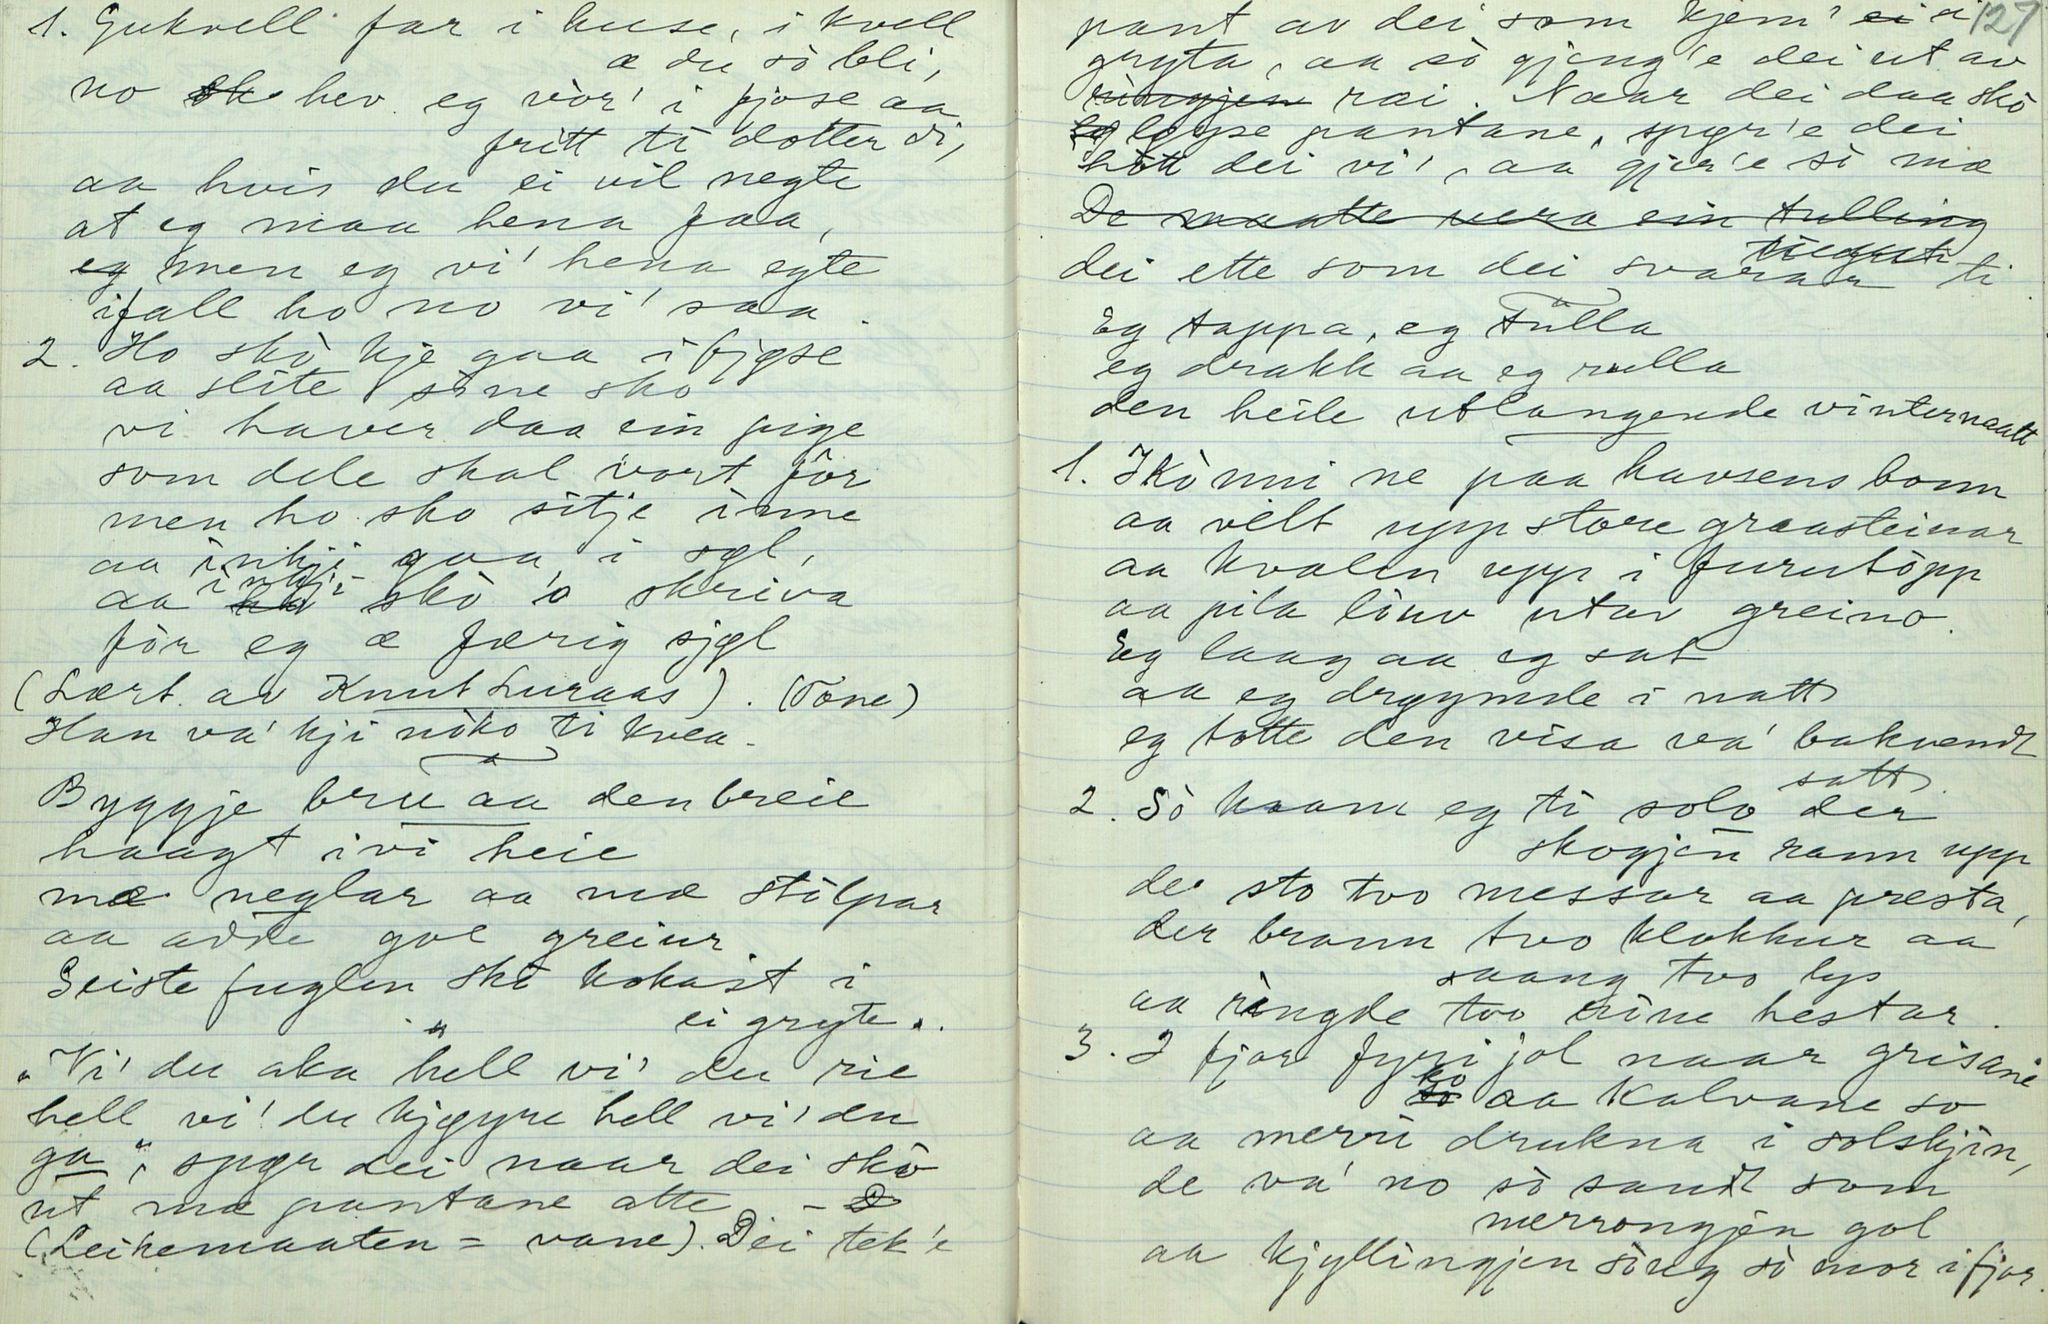 1. Gukvell far i huse, i kvell
æ du sò bli,
no hev eg vòr' i fjose aa
fritt ti dotter di,
aa hvis du ei vil negte
at eg maa hena faa,
eg men eg vi' hena egte
ifall ho no vi' saa.
2. Ho skò kje gaa i fjøse
aa slite sine sko
vi haver daa ein pige
som dele skal vort fòr
men ho sko sitje inne
aa inkji gaa i søl,
inkji
aa skò 'o skriva
fòr eg æ færig sjøl
(Lært av Knut Luraas). (Tone)
Han va' kji nòko ti kvea.
Byggje bru aa den breie
haagt ivi heie
mæ neglar aa mæ stòlpar
aa adde gol greinur
Seiste fuglen skò kokast i
ei gryte.
"Vi' du aka hell vi' du rie
hell vi' du kjøyre hell vi' du
ga", spør dei naar dei skò
ut mæ pantane atte –
(Leikemaaten = vane). Dei tek'e
127
pant av dei som kjem' ei i
gryta, aa sò gjeng'e dei ut av
ringjen rai. Naar dei daa skò
løyse pantane, spør'e dei
hòtt dei vi', aa gjer'e sò mæ
De maatte vera ein tulling
dei ette som dei svarar ti.
Eg tappa, eg fulla
eg drakk aa eg rulla
den heile utlangende vinternaatt
1. I kònni ne paa havsens bonn
aa vélt upp store graasteinar
aa kvalen upp i furutòpp
aa pila lòuv utav greino.
Eg laag aa eg sat
aa eg drøymde i natt
eg totte den visa va' bakvendt
satt.
2. Sò kaam eg ti solo der
skogjen rann upp
der sto tvo messur aa presta,
der brann tvo klokkur aa
saang tvo lys
aa ringde tvo mine hestar.
3. I fjor fyri jol naar grisane
ko aa kalvane so
aa merri drukna i solskjin,
de va' no sò sandt som
merrongjen gol
aa kjyllingjen sòug sò mor i fjor.